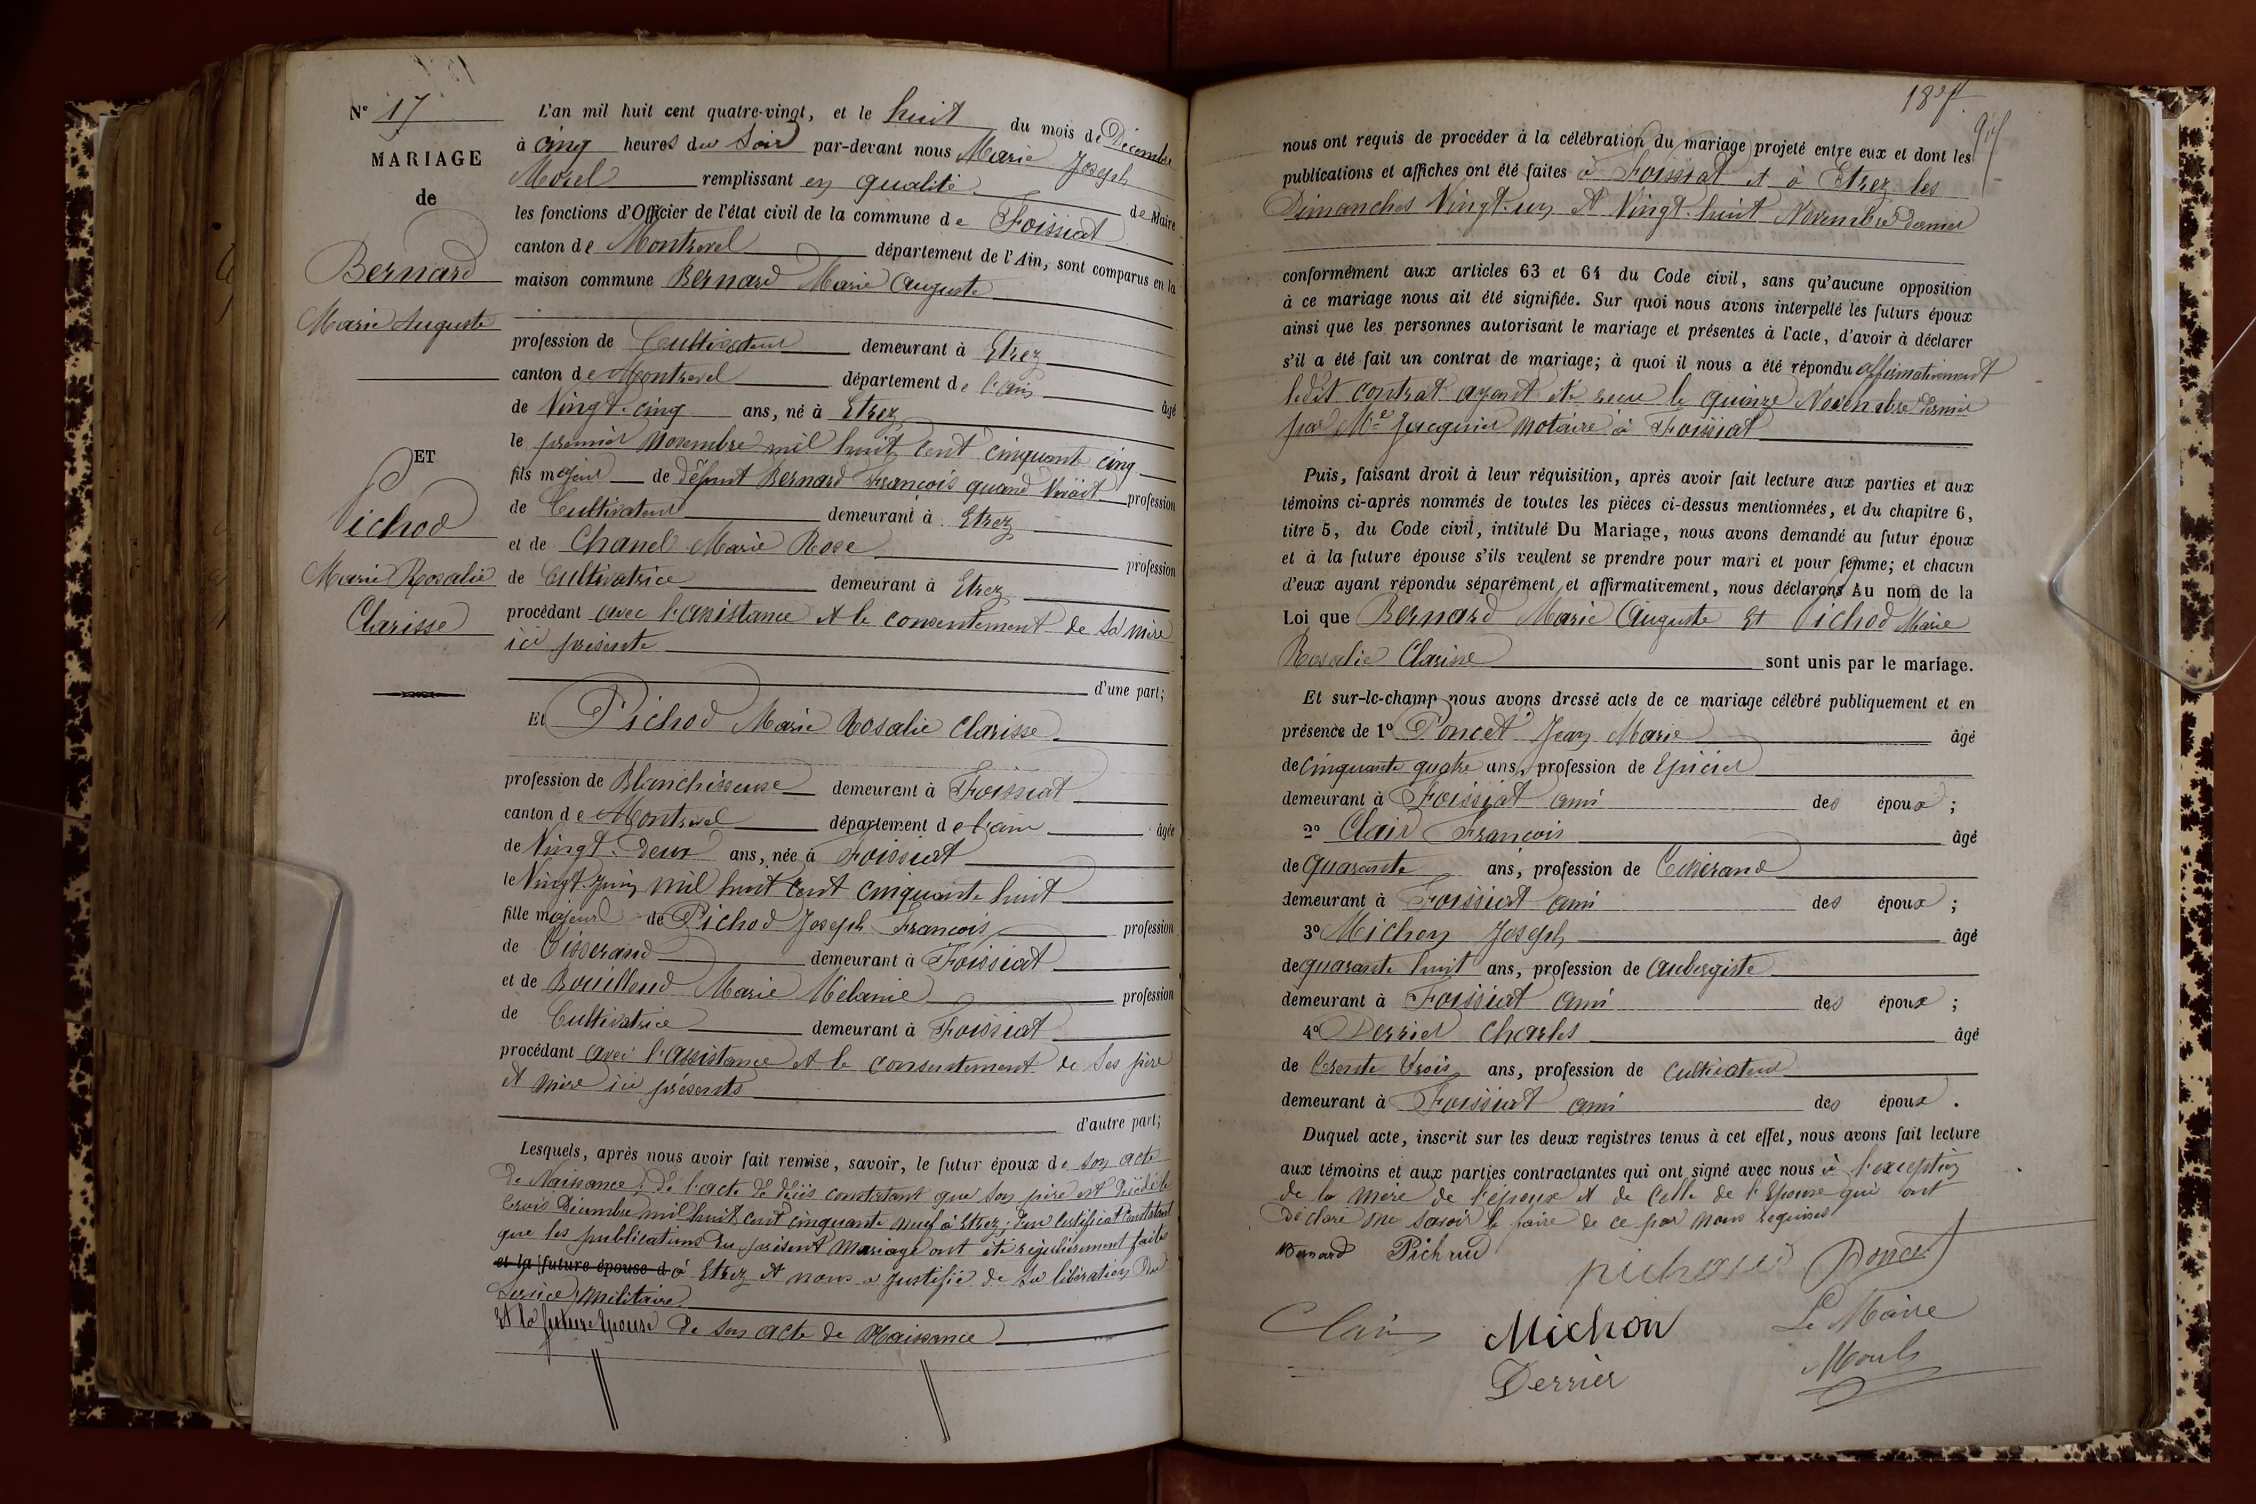 N° 17
MARIAGE
de
Bernard
Marie Auguste
ET
Pichod
Marie Rosalie
Clarisse
L'an mil huit cent quatre-vingt, et le huit du mois de Décembre
à cinq heures du Soir par-devant nous Marie Joseph
Morel remplissant en qualité de Maire
les fonctions d'Officier de l'état civil de la commune de Foissiat
canton de Montrevel département de l'Ain, sont comparus en la
maison commune Bernard Marie Auguste
profession de Cultivateur demeurant à Etrez
canton de Montrevel département de l'ain âgé
de Vingt-cinq ans, né à Etrez
le premier Novembre mil huit cent cinquante cinq
fils majeur de défunt Bernard François quand vivait profession
de Cultivateur demeurant à Etrez
et de Chanel Marie Rose profession
de Cultivatrice demeurant à Etrez
procédant avec l'assistance et le consentement de sa mère
ici présente
d'une part;
Et Pichod Marie Rosalie Clarisse
profession de Blanchisseuse demeurant à Foissiat
canton de Montrevel département de l'ain âgée
de Vingt-deux ans, née à Foissiat
le Vingt Juin mil huit cent cinquante huit
fille majeure de Pichod Joseph François profession
de Tisserand demeurant à Foissiat
et de Bouilloud Marie Mélanie profession
de Cultivatrice demeurant à Foissiat
procédant avec l'assistance et le consentement de ses père
et mère ici présents
d'autre part;
Lesquels, après nous avoir fait remise, savoir, le futur époux de son acte
de Naissance, de l'acte de décès constatant que son père est décédé le
trois Décembre mil huit cent cinquante neuf à Etrez, d'un Certificat Constatant
que les publications du présent Mariage ont été régulièrement faites
et la future épouse d à Etrez et nous a justifié de sa libération du
Service militaire.
Et la future Epouse de son acte de Naissance
nous ont requis de procéder à la célébration du mariage projeté entre eux et dont les
publications et affiches ont été faites à Foissiat et à Etrez les
Dimanches Vingt-un et Vingt-huit Novembre dernier
conformément aux articles 63 et 64 du Code civil, sans qu'aucune opposition
à ce mariage nous ait été signifiée. Sur quoi nous avons interpellé les futurs époux
ainsi que les personnes autorisant le mariage et présentes à l'acte, d'avoir à déclarer
s'il a été fait un contrat de mariage; à quoi il nous a été répondu affirmativement
ledit contrat ayant été reçu le quinze Novembre dernier
par Me Jacquier notaire à Foissiat
Puis, faisant droit à leur réquisition, après avoir fait lecture aux parties et aux
témoins ci-après nommés de toutes les pièces ci-dessus mentionnées, et du chapitre 6,
titre 5, du Code civil, intitulé Du Mariage, nous avons demandé au futur époux
et à la future épouse s'ils veulent se prendre pour mari et pour femme; et chacun
d'eux ayant répondu séparément et affirmativement, nous déclarons Au nom de la
Loi que Bernard Marie Auguste Et Pichod Marie
Rosalie Clarisse sont unis par le mariage.
Et sur-le-champ nous avons dressé acte de ce mariage célébré publiquement et en
présence de 1° Poncet Jean Marie âgé
de Cinquante quatre ans, profession de Epicier
demeurant à Foissiat ami des époux ;
2° Clair François âgé
de quarante ans, profession de
demeurant à Foissiat ami des époux ;
3° Michon Joseph âgé
de quarante huit ans, profession de Aubergiste
demeurant à Foissiat ami des époux ;
4° Derrier Charles âgé
de Trente Trois ans, profession de Cultivateur
demeurant à Foissiat ami des époux .
Duquel acte, inscrit sur les deux registres tenus à cet effet, nous avons fait lecture
aux témoins et aux parties contractantes qui ont signé avec nous à l'exception
de la mère de l'époux et de Celle de l'Epouse qui ont
déclaré ne savoir le faire de ce par nous requises
Bernard Pichod Poncet
Clair Michon Le Maire
Derrier Morel